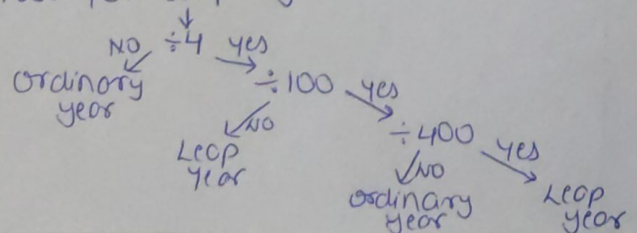 ↓
NO ÷4 yes
ordinary
year
÷100 yes
NO
Leap
year
÷400 yes
NO
ordinary
year
Leap
year